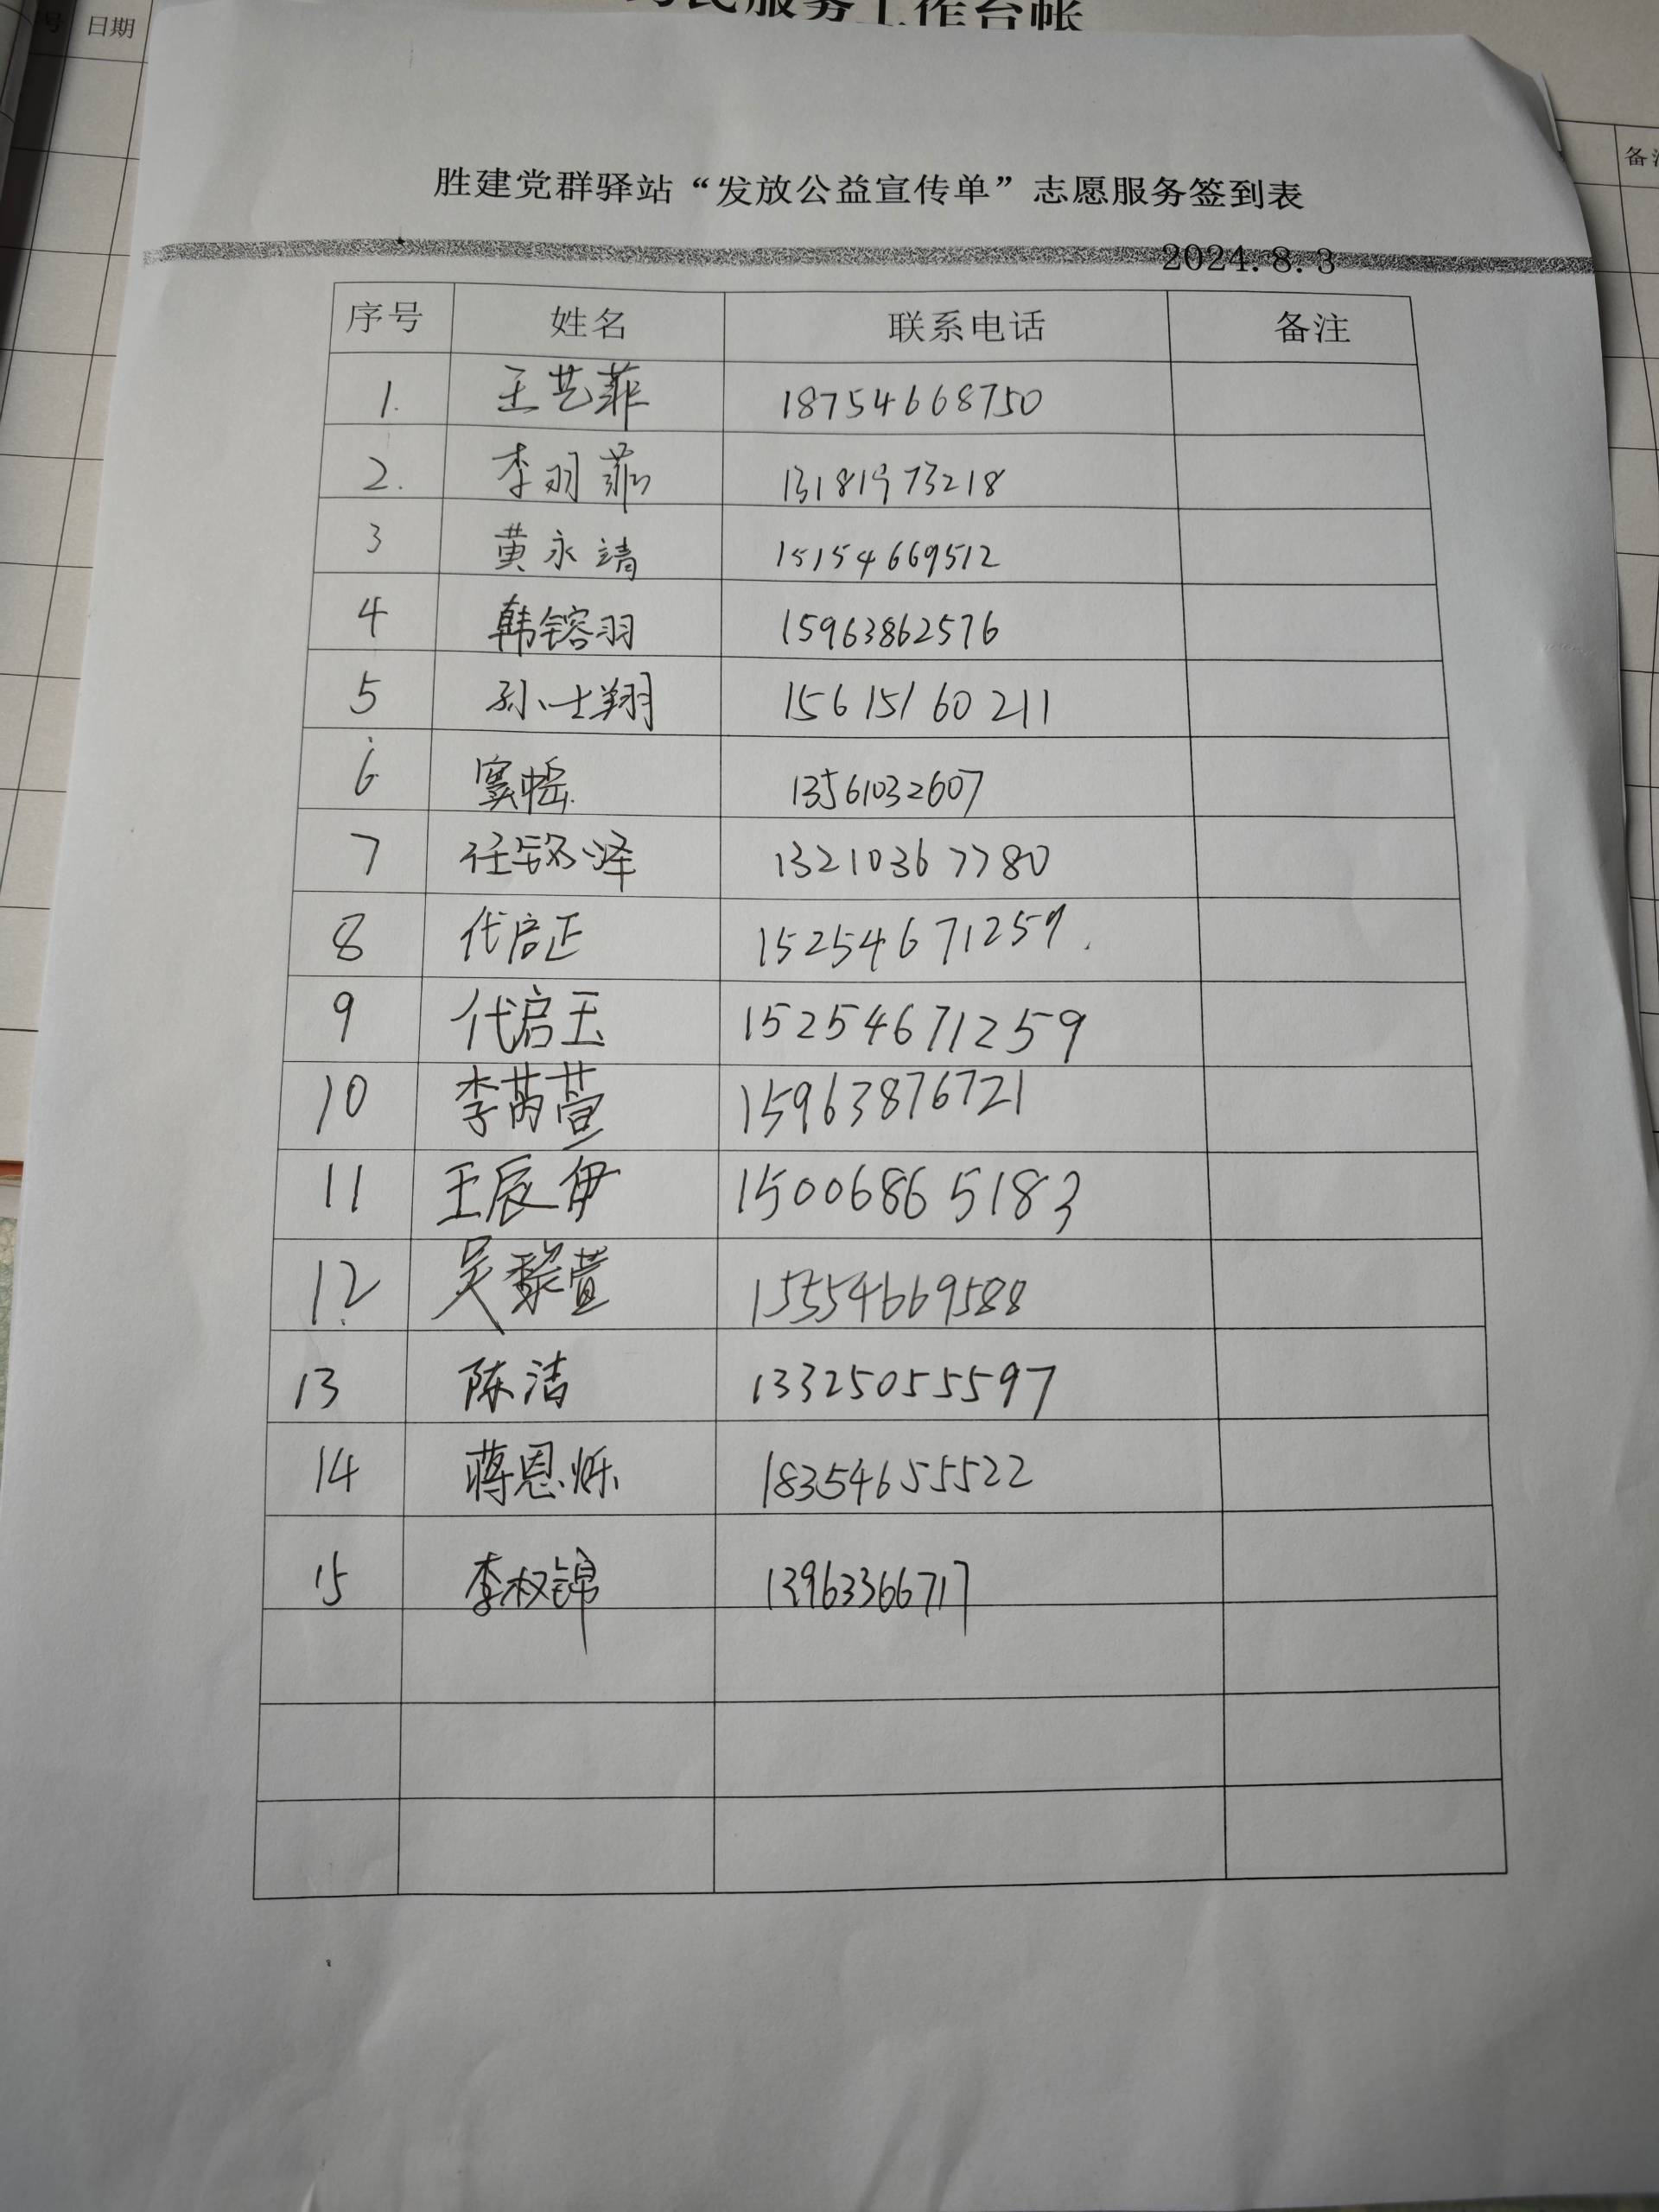 号 日期
为民服务工作台帐
备注
胜建党群驿站“发放公益宣传单”志愿服务签到表
2024.8.3
序号 姓名 联系电话 备注
1. 王艺菲 18754668750
2. 李羽菲 13181973218
3 黄永靖 15154669512
4 韩镕羽 15963862576
5 孙士翔 15615160211
6 窦 13561032607
7 任铭泽 13210367780
8 代启正 15254671259.
9 代启玉 15254671259
10 李芮萱 15963876721
11 王辰伊 15006865183
12. 吴黎萱 15554669588
13 陈洁 13325055597
14 蒋恩烁 18354655522
15 李权锦 13963366717